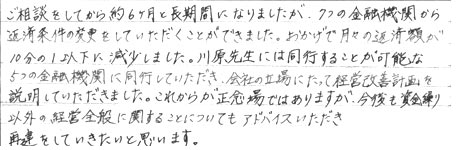 ご相談をしてから約6ヶ月と長期間になりましたが、7つの金融機関から
返済条件の変更をしていただくことができました。おかげで月々の返済額が
10分の1以下に減少しました。川原先生には同行することが可能な
5つの金融機関に同行していただき、会社の立場にたって経営改善計画を
説明していただきました。これからが正念場ではありますが、今後も資金繰り
以外の経営全般に関することについてもアドバイスいただき
再建をしていきたいと思います。